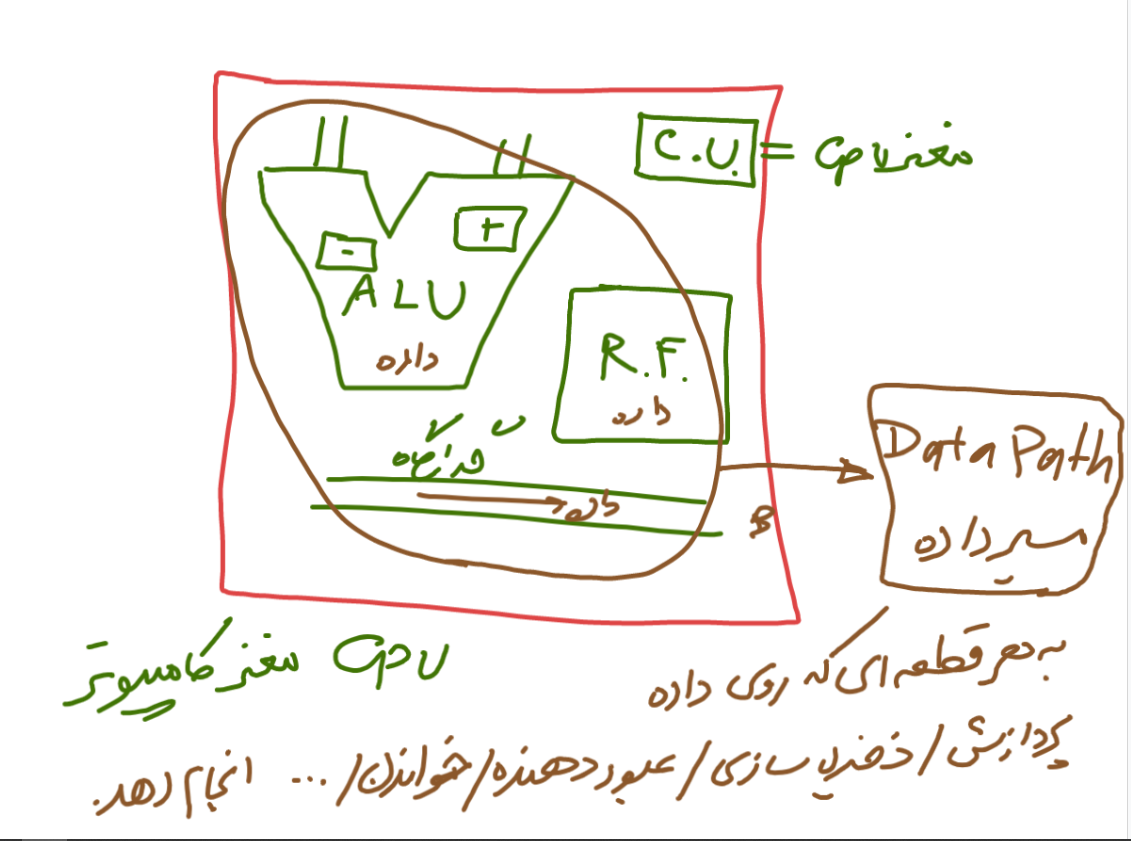 C.U. = مغز CPU
+
-
ALU
داده
R.F.
داده
داده
B
Data Path
مسیر داده
CPU مغز کامپیوتر
به هر قطعه ای که روی داده
پردازش / ذخیره سازی / عبور دهنده / خواندن / ... انجام دهد.